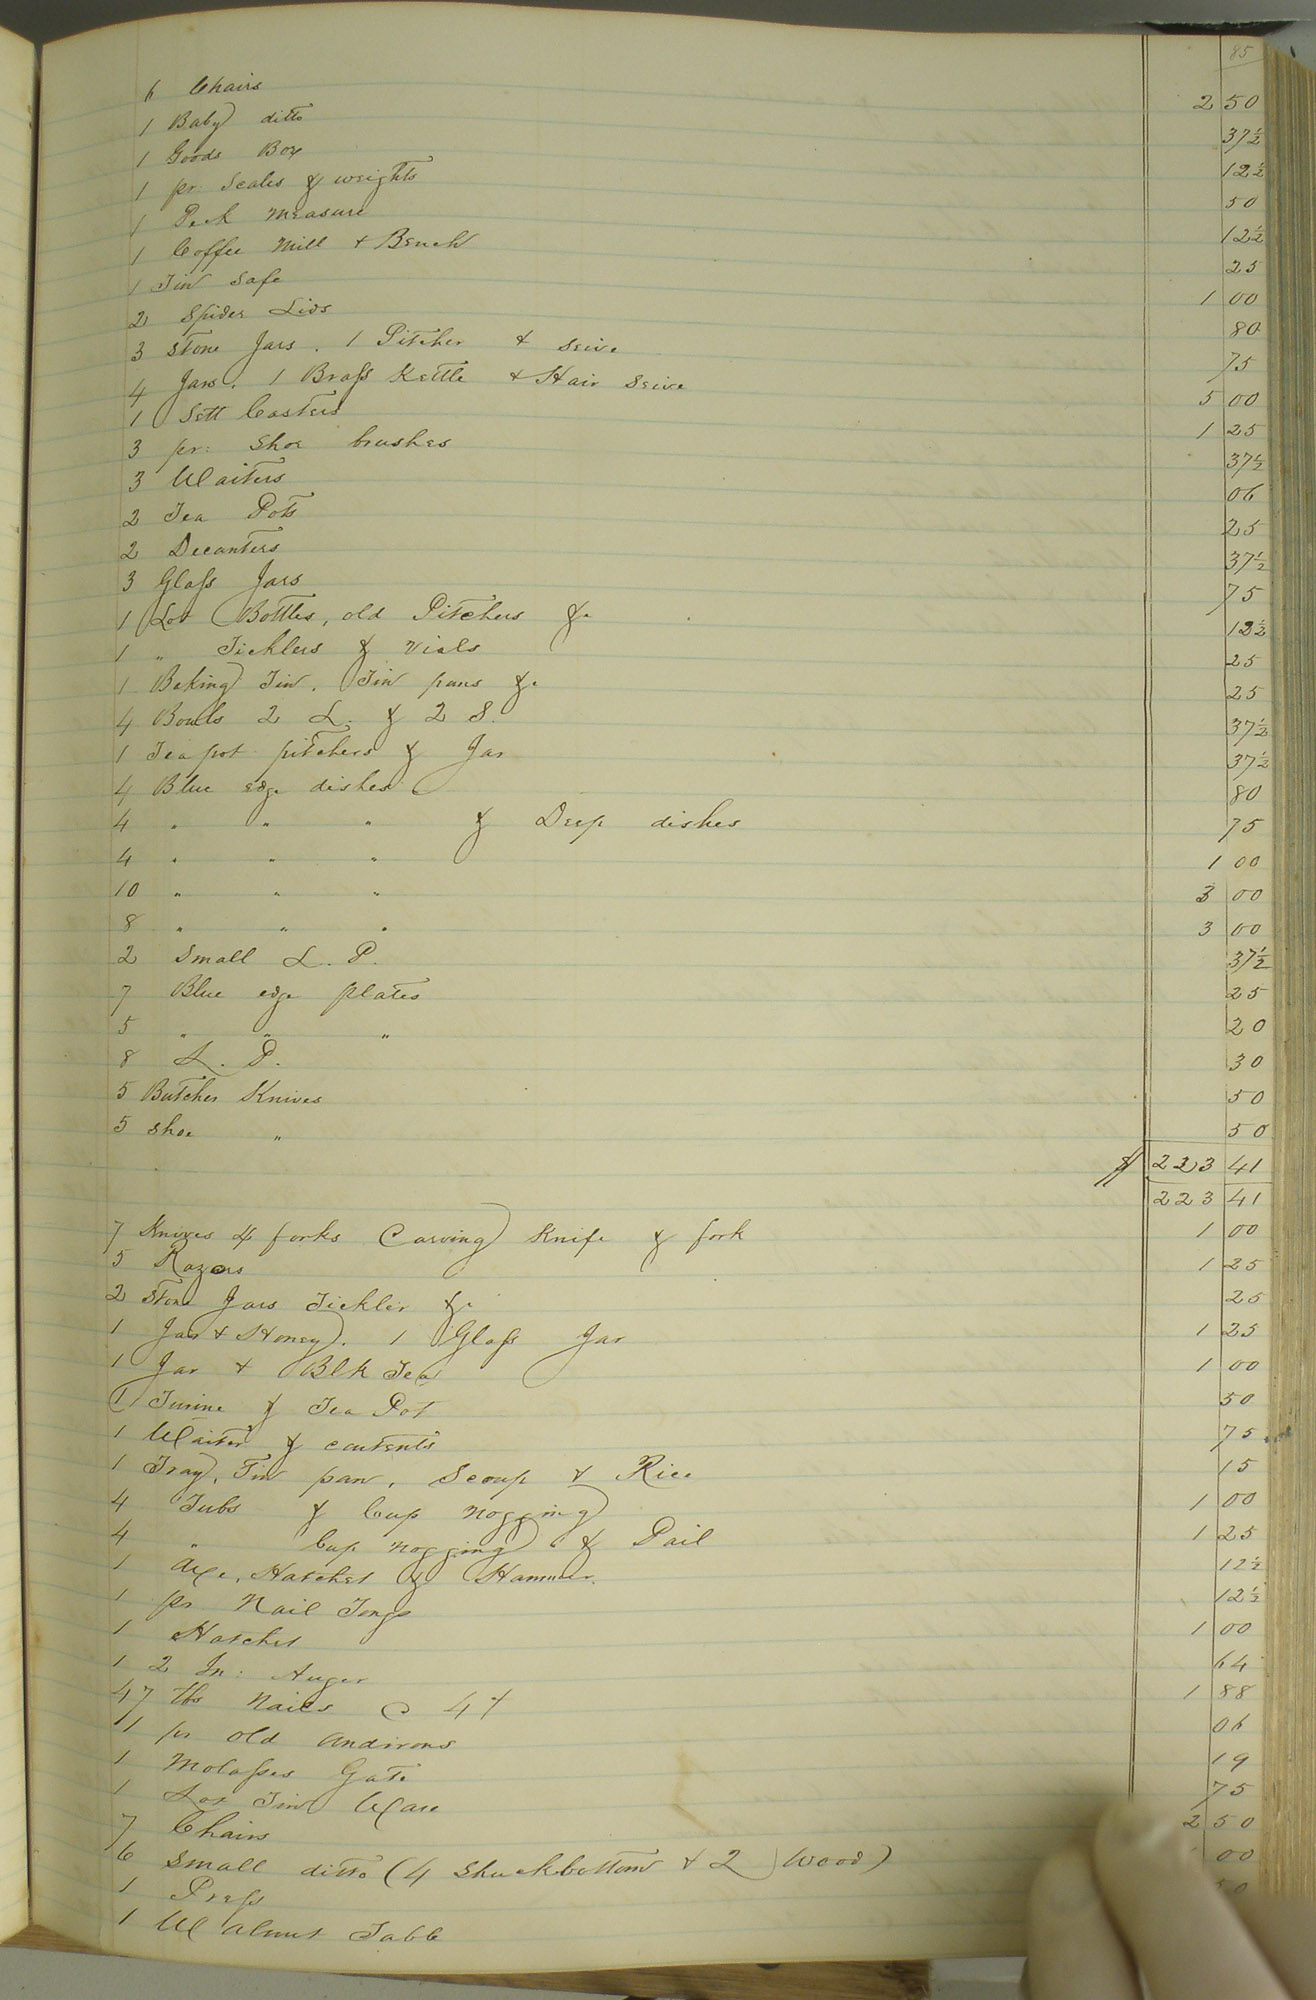 85
6 Chairs 2 50
1 Baby ditto 37½
1 Goods Box 12½
1 pr. Scales & weights 50
1 Peck measure 12½
1 Coffee Mill & Bench 25
1 Tin Safe 1 00
2 Spider Lids 80
3 Stone Jars. 1 Pitcher & seive 75
4 Jars. 1 Brass Kettle & Hair Seive 5 00
1 Sett Casters 1 25
3 pr: Shoe brushes 37½
3 Waiters 06
2 Tea Pots 25
2 Decanters 37½
3 Glass Jars 75
1 Lot Bottles, old Pitchers &c 12½
1 " Ticklers & vials 25
1 Baking Tin. Tin pans &c 25
4 Bowls 2 L. & 2 S. 37½
1 Teapot pitchers & Jar 37½
4 Blue edge dishes 80
4 " " " & Deep dishes 75
4 " " " 1 00
10 " " " 3 00
8 " " " 3 00
2 Small L. P. 37½
7 Blue edge plates 25
5 " " " 20
8 L. P. 30
5 Butcher Knives 50
5 Shoe " 50
$ 223 41
223 41
7 Knives 4 forks Carving Knife & fork 1 00
5 Razors 1 25
2 Stone Jars Tickler &c 25
1 Jar & Honey. 1 Glass Jar 1 25
1 Jar & Blk Tea 1 00
1 Turine & Tea Pot 50
1 Waiter & contents 75
1 Tray, Tin pan, Scoup & Rice 15
4 Tubs & Cup nogging 1 00
4 " Cup nogging & Pail 1 25
1 Axe, Hatchet & Hammer. 12½
1 pr Nail Tongs 12½
1 Hatchet 1 00
1 2 In: Auger 64
47 lbs Nails @ 4¢ 1 88
1 pr old andirons 06
1 Molasses Gate 19
1 Lot Tin Ware 75
7 Chairs 2 50
6 Small ditto (4 Shuckbottom & 2 Wood) 00
1 Press
1 Walnut Table